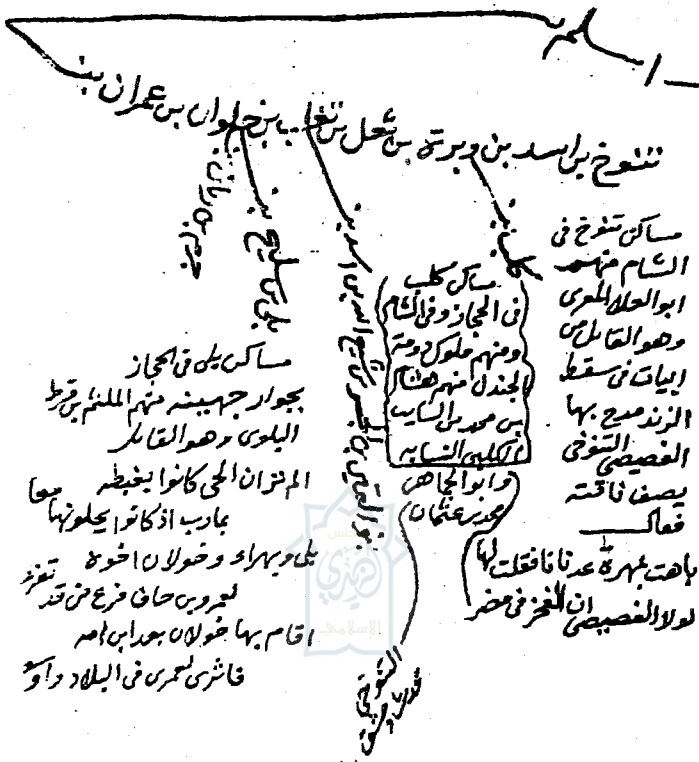 اسلم
تنوخ بن اسد بن وبرة بن تغلب بن حلوان بن عمران بن
مساكن تنوخ فى
الشام منهم
ابو العلا المعرى
وهو القائل من
ابيات فى سقط
الزند مدح بها
الفصيصى التنوخى
يصف ناقته
فقال
باهت بمهرة عدنانا فقلت لها
لولا الفصيصى ان الفخر فى مضر
كلب بن
مساكن كلب
فى الحجاز وفى الشام
ومنهم ملوك دومة
الجندل منهم هشام
بن محمد بن السايب
الكلبى النسابه
وابو الجماهر
محمد بن عثمان
التنوخى
بنو القين بن جسر بن شيع الله بن اسد بن
بلى بن
مساكن بلى فى الحجاز
بجوار جهينه منهم المثلم بن قرط
البلوى وهو القائل
الم تر ان الحى كانوا بغبطه
بمارب اذ كانوا يحلونها معا
بلى وبهراء وخولان اخوة
لعمرو بن حاف فرع من قد تفرعا
اقام بها خولان بعد ابن امه
فاثرى لعمرى فى البلاد
المجلس
الإسلامي